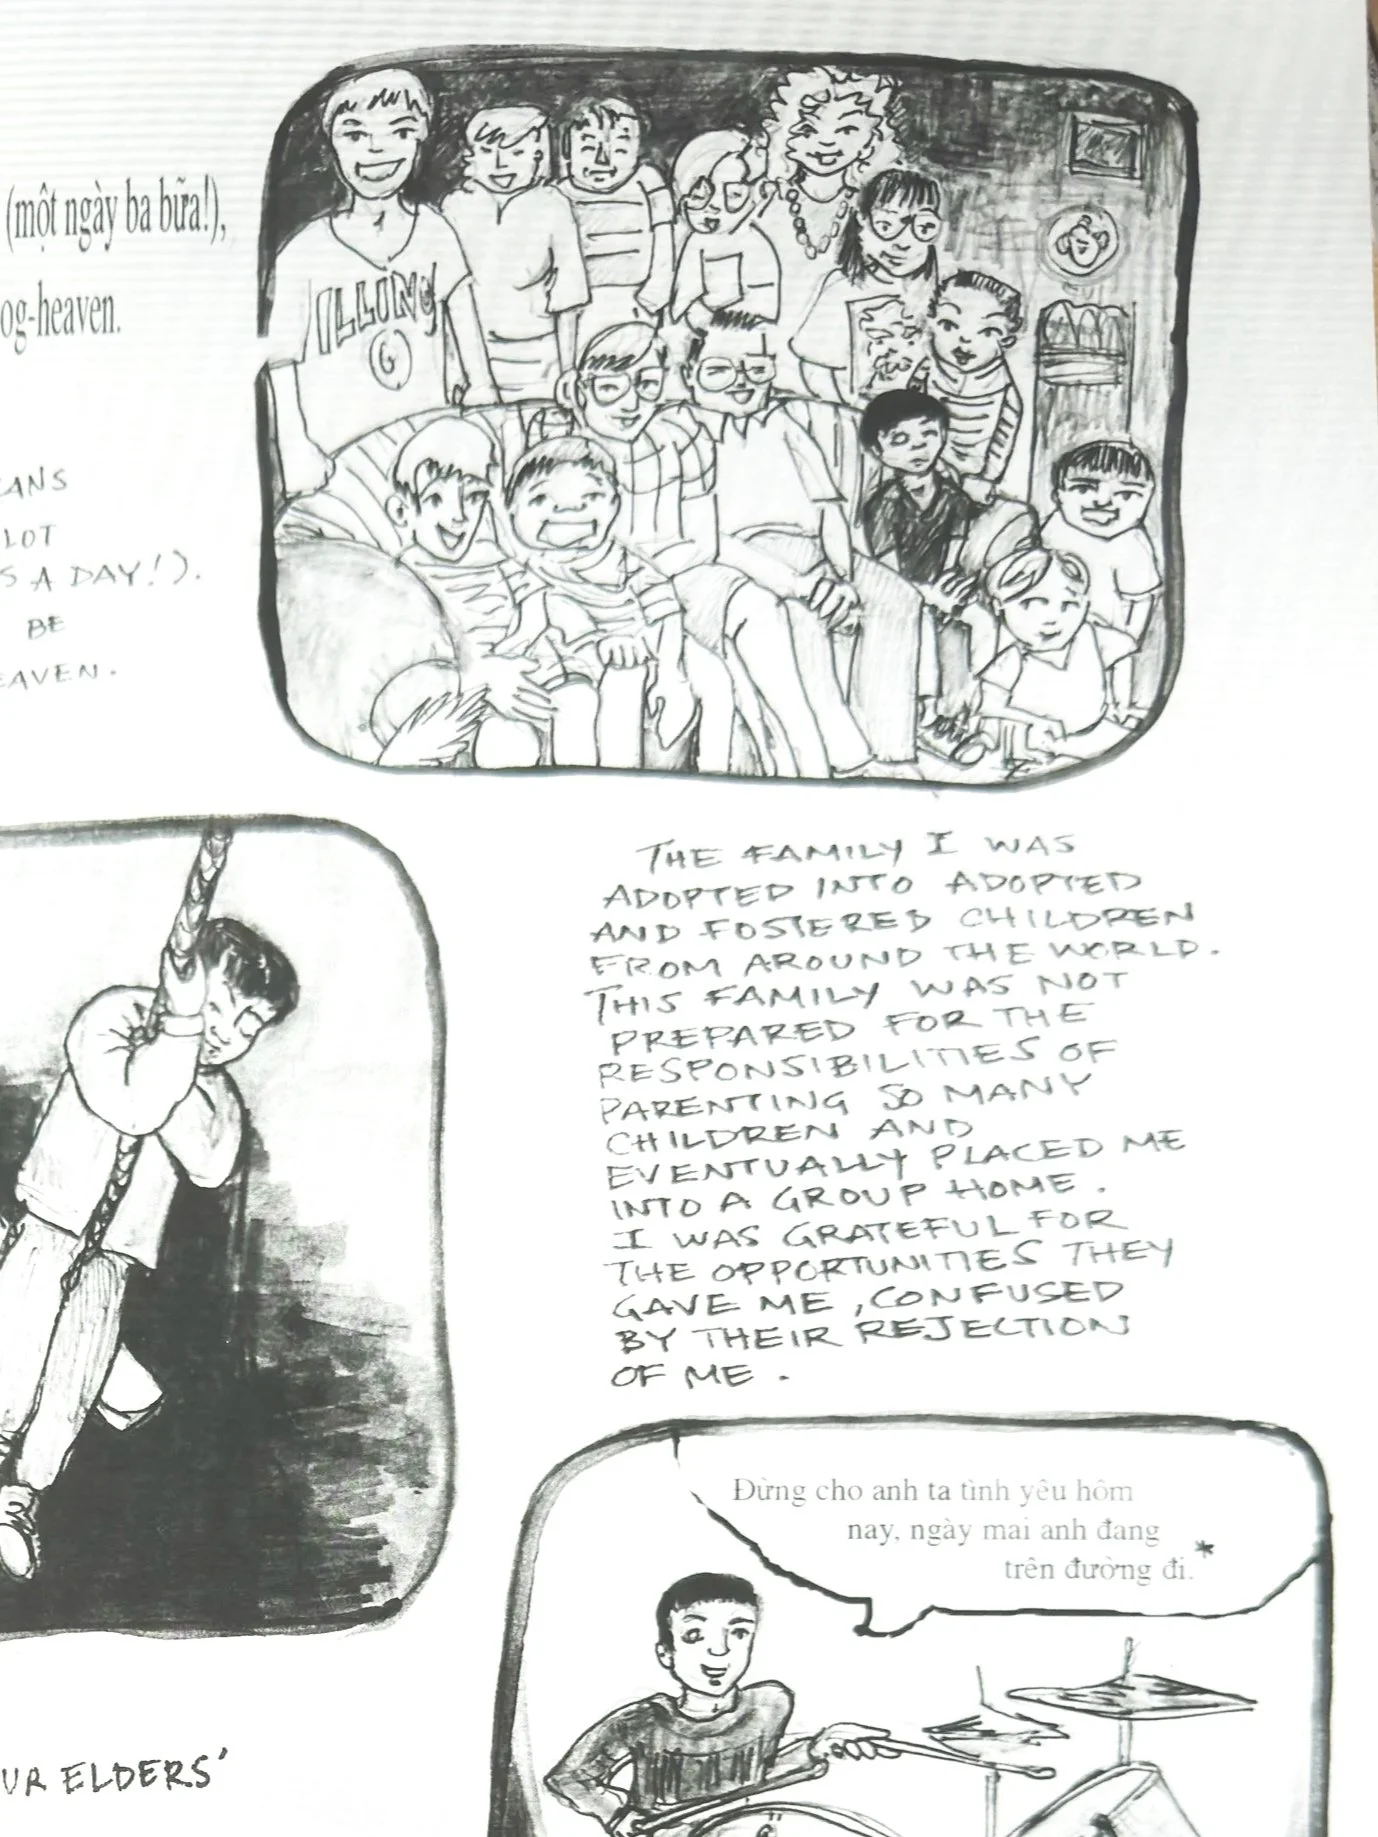 (một ngày ba bữa!),
og-heaven.
ANS
LOT
S A DAY!).
BE
EAVEN.
ILLINI
THE FAMILY I WAS
ADOPTED INTO ADOPTED
AND FOSTERED CHILDREN
FROM AROUND THE WORLD.
THIS FAMILY WAS NOT
PREPARED FOR THE
RESPONSIBILITIES OF
PARENTING SO MANY
CHILDREN AND
EVENTUALLY PLACED ME
INTO A GROUP HOME.
I WAS GRATEFUL FOR
THE OPPORTUNITIES THEY
GAVE ME, CONFUSED
BY THEIR REJECTION
OF ME.
Đừng cho anh ta tình yêu hôm
nay, ngày mai anh đang
trên đường đi.*
UR ELDERS'